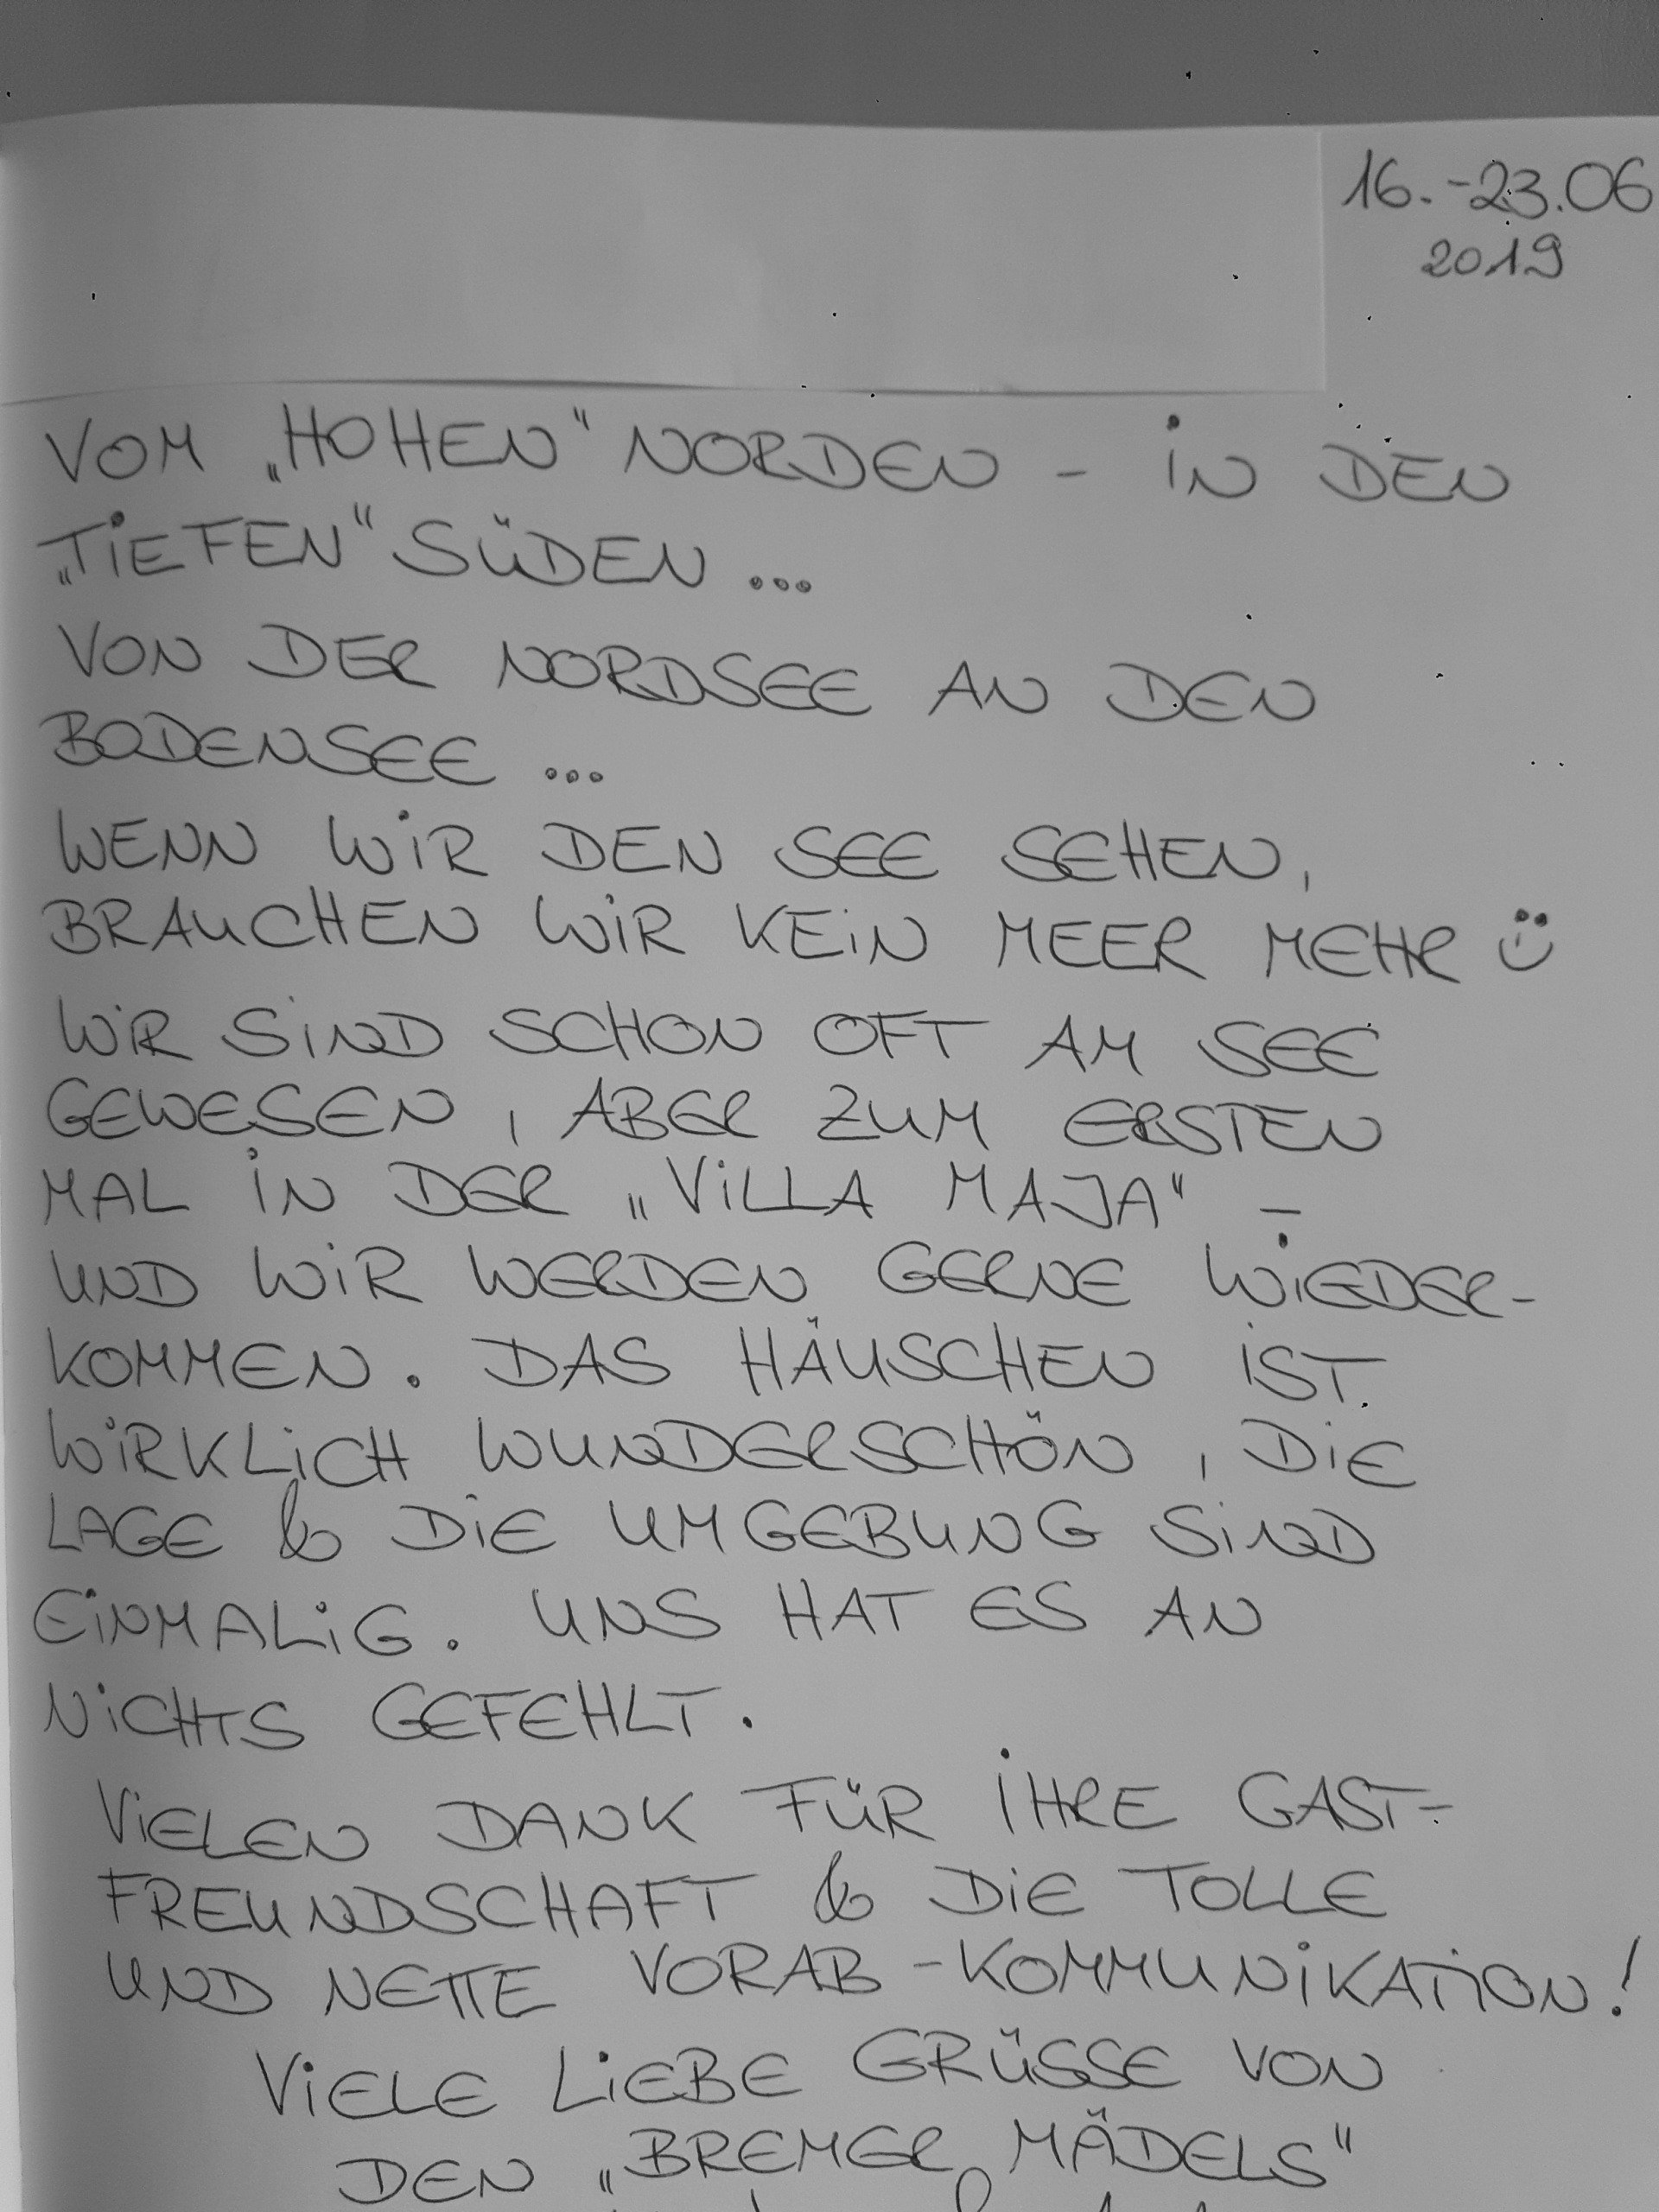 16.-23.06
2019
VOM „HOHEN" NORDEN - IN DEN
„TIEFEN" SÜDEN ...
VON DER NORDSEE AN DEN
BODENSEE ...
WENN WIR DEN SEE SEHEN,
BRAUCHEN WIR KEIN MEER MEHR ☺
WIR SIND SCHON OFT AM SEE
GEWESEN, ABER ZUM ERSTEN
MAL IN DER „VILLA MAJA" -
UND WIR WERDEN GERNE WIEDER-
KOMMEN. DAS HÄUSCHEN IST
WIRKLICH WUNDERSCHÖN, DIE
LAGE & DIE UMGEBUNG SIND
EINMALIG. UNS HAT ES AN
NICHTS GEFEHLT.
VIELEN DANK FÜR IHRE GAST-
FREUNDSCHAFT & DIE TOLLE
UND NETTE VORAB-KOMMUNIKATION!
VIELE LIEBE GRÜSSE VON
DEN „BREMER MÄDELS"